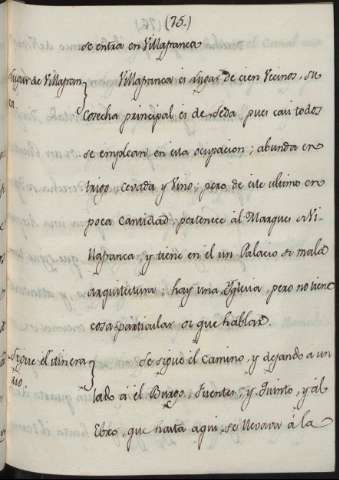 (75.)
se entra en Villafranca
Lugar de Villafran
ca.
Villafranca es lugar de cien Vecinos, su
cosecha principal es de seda pues casi todos
se emplean en esta ocupacion; abunda en
trigo, cevada y Vino; pero de este ultimo en
poca cantidad; pertenece ál Marques de Vi
llafranca, y tiene en el un Palacio de mala
arquitectura; hay una Yglesia, pero no tiene
cosa particular de que hablar.
Sigue el itinera
rio.
Se sigue el camino, y dejando a un
lado á el Burgo, Fuentes, y Quinto, y al
Ebro, que hasta aqui, se llevava á la